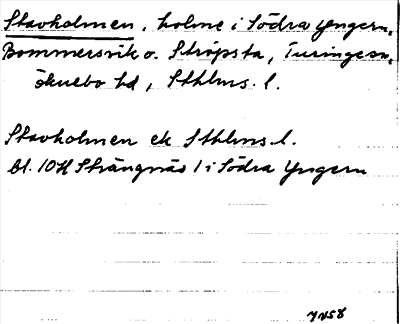 Stavholmen, holme i Södra Yngern,
Bommersvik o. Sträpsta, Turinge sn,
Öknebo hd, Sthlms. l.
Stavholmen ek Sthlms. l.
bl. 10H Strängnäs 1 i Södra Yngern